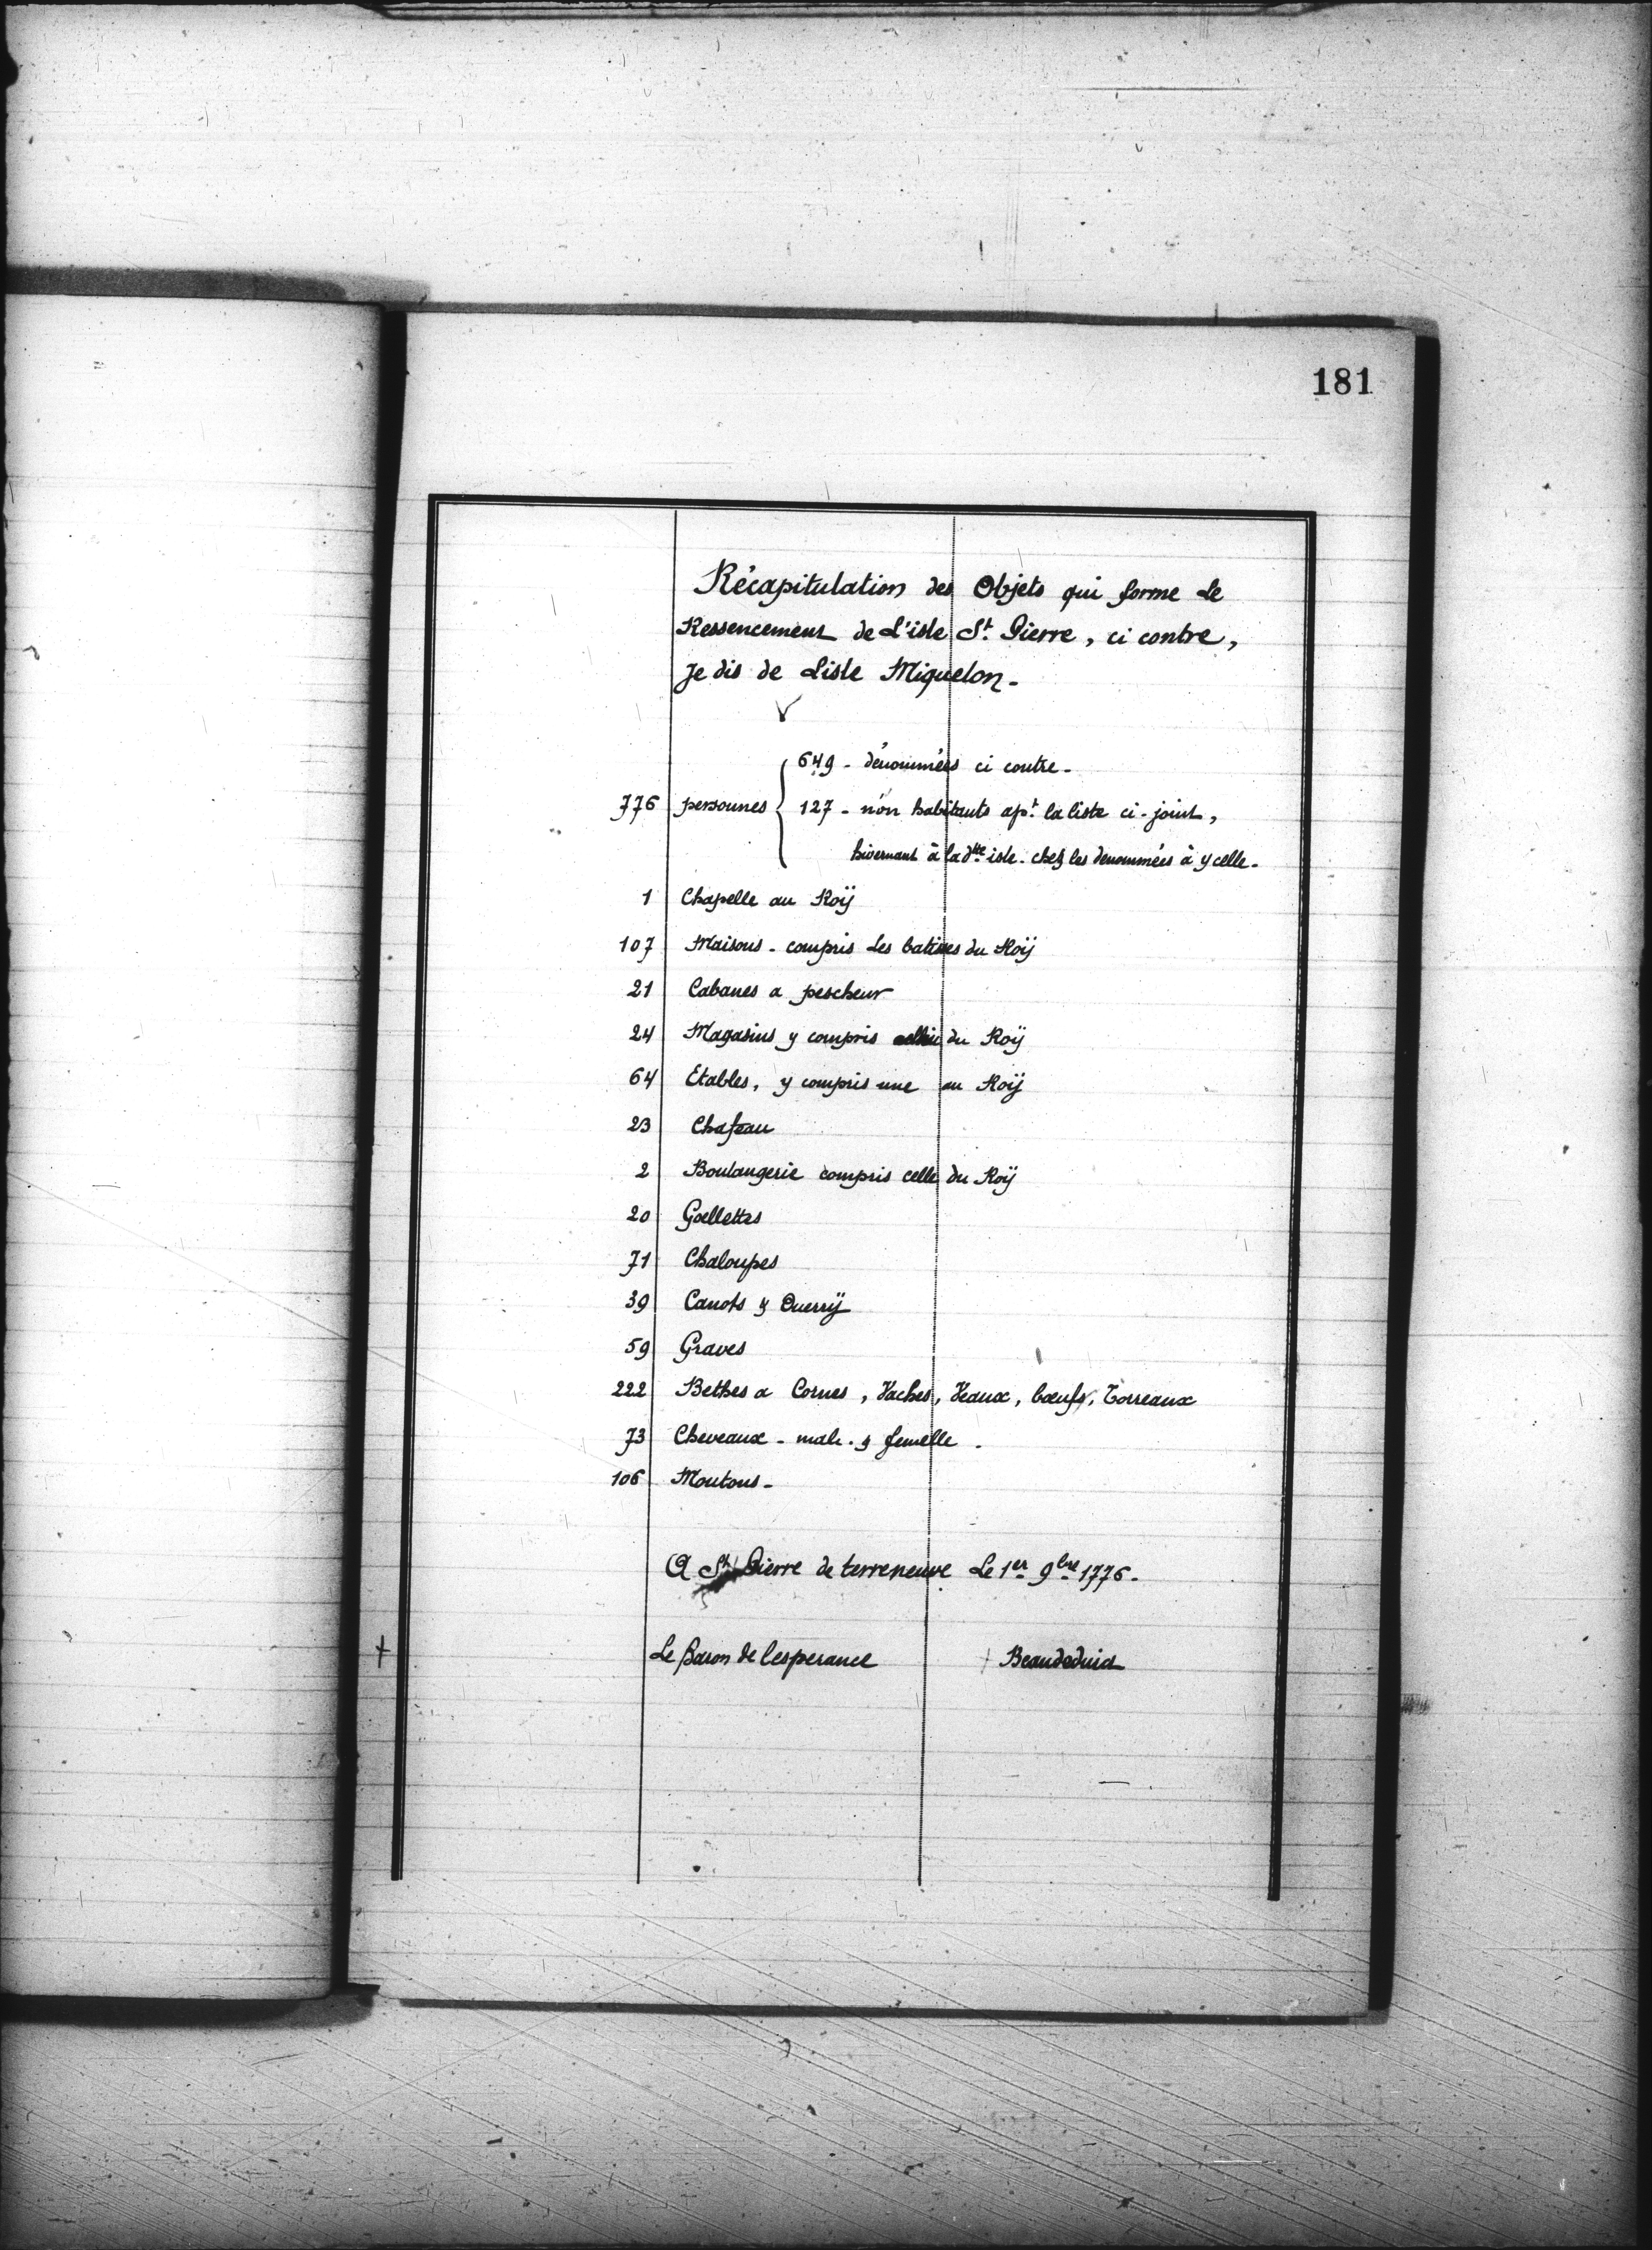 181
Récapitulation des Objets qui forme Le
Ressencement de L'isle St. Pierre, ci contre,
Je dis de Lisle Miquelon -
649 - dénommées ci contre -
776 personnes 127 - non habitants apt. la liste ci-joint,
hivernant à la dtte isle. chez les denommées à ycelle -
1 Chapelle au Roÿ
107 Maisons - compris Les batisses du Roÿ
21 Cabanes a pescheur
24 Magasins y compris du Roÿ
64 Etables, y compris une au Roÿ
23 Chafeau
2 Boulangerie compris celle du Roÿ
20 Gœllettes
71 Chaloupes
39 Canots &
59 Graves
222 Bethes a Cornes, Vaches, Veaux, bœufs, Torreaux
73 Cheveaux - male. & femelle -
106 Moutons -
A St. Pierre de terreneuve Le 1er 9bre 1776 -
Le Baron de l'esperance Beaudeduit